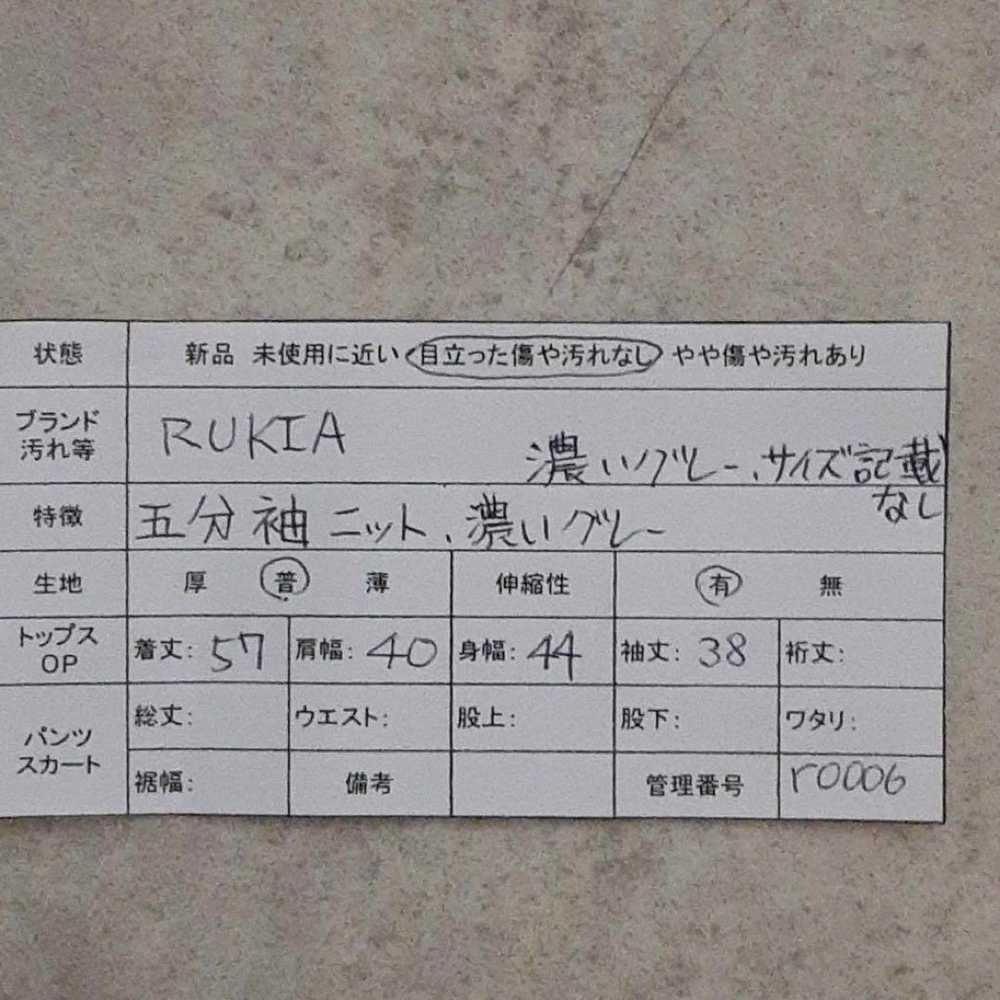 状態 新品 未使用に近い 目立った傷や汚れなし やや傷や汚れあり
ブランド
汚れ等
RUKIA
濃いグレー、サイズ記載
なし
特徴 五分袖ニット、濃いグレー
生地 厚 普 薄 伸縮性 有 無
トップス
OP
着丈: 57 肩幅: 40 身幅: 44 袖丈: 38 裄丈:
パンツ
スカート
総丈: ウエスト: 股上: 股下: ワタリ:
裾幅: 備考 管理番号 r0006